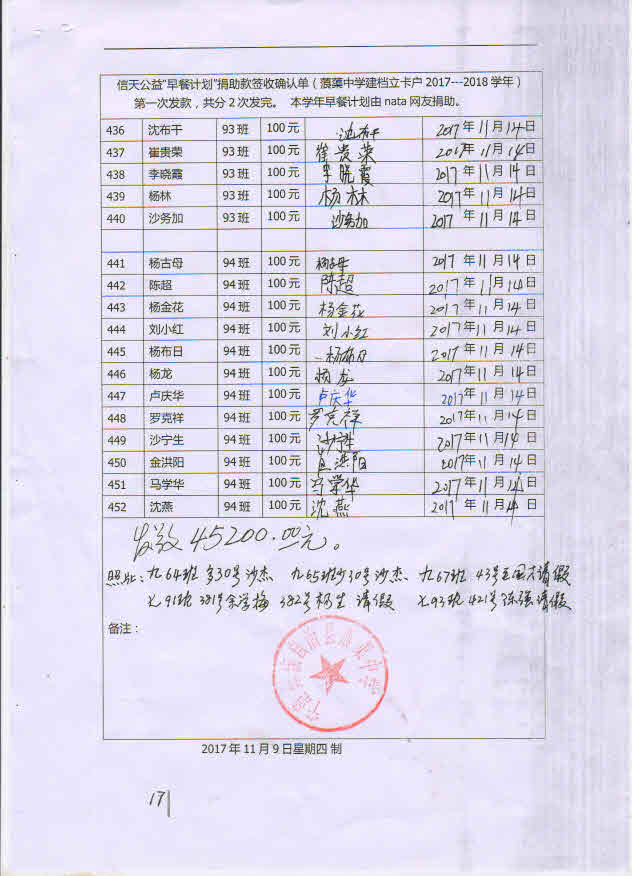 信天公益“早餐计划”捐助款签收确认单（蒗蕖中学建档立卡户2017---2018学年）
第一次发款，共分2次发完。 本学年早餐计划由nata网友捐助。
436 沈布干 93班 100元 沈布干 2017年11月14日
437 崔贵荣 93班 100元 崔贵荣 2017年11月14日
438 李晓霞 93班 100元 李晓霞 2017年11月14日
439 杨林 93班 100元 杨林 2017年11月14日
440 沙务加 93班 100元 沙务加 2017年11月14日
441 杨古母 94班 100元 杨古母 2017年11月14日
442 陈超 94班 100元 陈超 2017年11月14日
443 杨金花 94班 100元 杨金花 2017年11月14日
444 刘小红 94班 100元 刘小红 2017年11月14日
445 杨布日 94班 100元 杨布日 2017年11月14日
446 杨龙 94班 100元 杨龙 2017年11月14日
447 卢庆华 94班 100元 卢庆华 2017年11月14日
448 罗克祥 94班 100元 罗克祥 2017年11月14日
449 沙宁生 94班 100元 沙宁生 2017年11月14日
450 金洪阳 94班 100元 洪阳 2017年11月14日
451 马学华 94班 100元 马学华 2017年11月14日
452 沈燕 94班 100元 沈燕 2017年11月14日
发放45200.00元。
照片：九64班 30号沙杰、九65班 30号沙杰、九67班 43号 请假
七91班 381号余学梅 382号杨生 请假 七93班421号陈强请假
备注：
2017年11月9日星期四 制
17